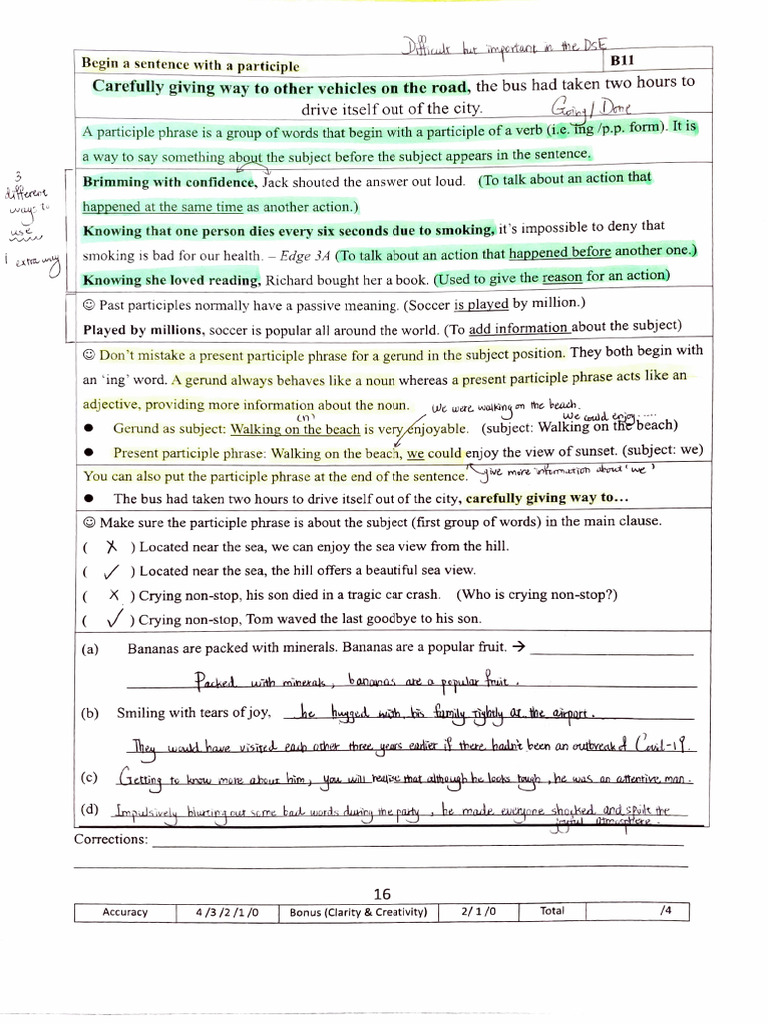 Difficult but important in the DSE
Begin a sentence with a participle
B11
Carefully giving way to other vehicles on the road, the bus had taken two hours to
drive itself out of the city.
Going / Done
A participle phrase is a group of words that begin with a participle of a verb (i.e. ing /p.p. form). It is
a way to say something about the subject before the subject appears in the sentence.
3
different
ways to
use
1 extra way
Brimming with confidence, Jack shouted the answer out loud. (To talk about an action that
happened at the same time as another action.)
Knowing that one person dies every six seconds due to smoking, it's impossible to deny that
smoking is bad for our health. – Edge 3A (To talk about an action that happened before another one.)
Knowing she loved reading, Richard bought her a book. (Used to give the reason for an action)
☺ Past participles normally have a passive meaning. (Soccer is played by million.)
Played by millions, soccer is popular all around the world. (To add information about the subject)
☺ Don't mistake a present participle phrase for a gerund in the subject position. They both begin with
an 'ing' word. A gerund always behaves like a noun whereas a present participle phrase acts like an
adjective, providing more information about the noun.
We were walking on the beach.
We could enjoy ....
(n)
● Gerund as subject: Walking on the beach is very enjoyable. (subject: Walking on the beach)
● Present participle phrase: Walking on the beach, we could enjoy the view of sunset. (subject: we)
You can also put the participle phrase at the end of the sentence.
give more information about 'we'
● The bus had taken two hours to drive itself out of the city, carefully giving way to…
☺ Make sure the participle phrase is about the subject (first group of words) in the main clause.
( ✗ ) Located near the sea, we can enjoy the sea view from the hill.
( ✓ ) Located near the sea, the hill offers a beautiful sea view.
( ✗ ) Crying non-stop, his son died in a tragic car crash. (Who is crying non-stop?)
( ✓ ) Crying non-stop, Tom waved the last goodbye to his son.
(a) Bananas are packed with minerals. Bananas are a popular fruit. →
Packed with minerals, bananas are a popular fruit.
(b) Smiling with tears of joy, he hugged with his family tightly at the airport.
They would have visited each other three years earlier if there hadn't been an outbreak of Covid-19.
(c) Getting to know more about him, you will realise that although he looks tough, he was an attentive man.
(d) Impulsively blurting out some bad words during the party, he made everyone shocked and spoilt the
joyful atmosphere.
Corrections:
16
Accuracy 4 /3 /2 /1 /0 Bonus (Clarity & Creativity) 2/ 1 /0 Total /4